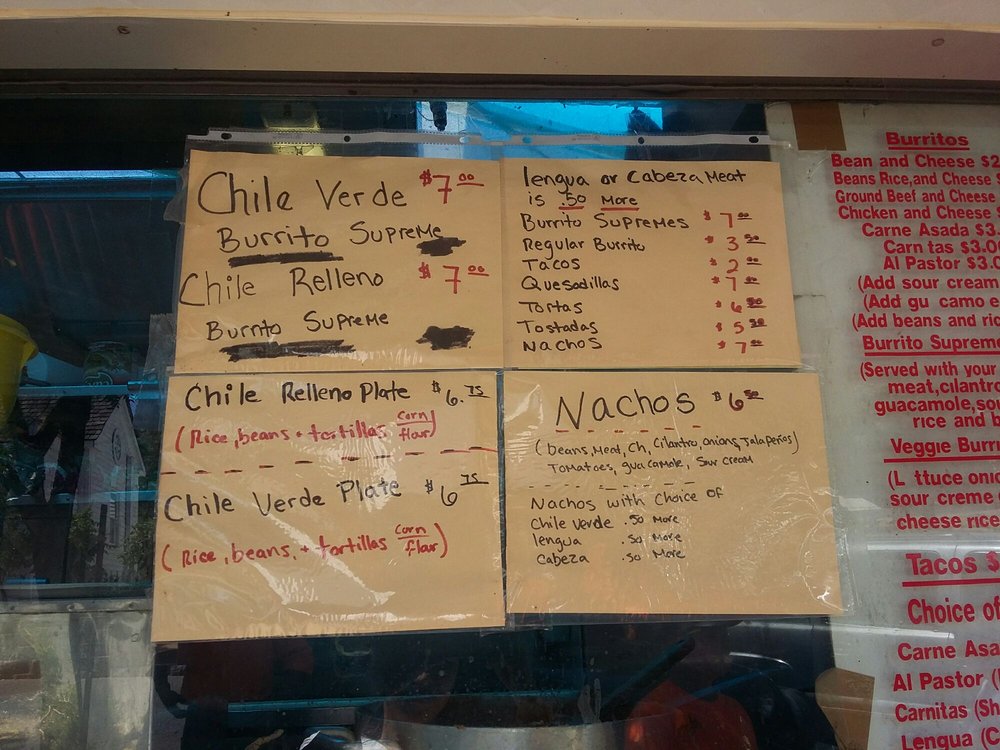 Chile Verde $7.00
Burrito Supreme
Chile Relleno $7.00
Burrito Supreme
lengua or Cabeza Meat
is .50 More
Burrito Supremes $7.00
Regular Burrito $3.50
Tacos $2.00
Quesadillas
Tortas $6.50
Tostadas $5.50
Nachos $7.00
Chile Relleno Plate $6.75
(Rice, beans + tortillas corn/flour)
Chile Verde Plate $6.75
(Rice, beans, + tortillas corn/flour)
Nachos $6.50
(beans, Meat, Ch, Cilantro, onions, Jalapeños)
Tomatoes, guacamole, Sour Cream
Nachos with Choice of
Chile Verde .50 More
lengua .50 More
cabeza .50 More
Burritos
Bean and Cheese $2
Beans Rice, and Cheese
Ground Beef and Cheese
Chicken and Cheese
Carne Asada $3.
Carn tas $3.0
Al Pastor $3.0
(Add sour cream
(Add gu camo e
(Add beans and ric
Burrito Supreme
(Served with your
meat, cilantro
guacamole, sou
rice and b
Veggie Burri
(L ttuce onio
sour creme,
cheese rice
Tacos $
Choice of
Carne Asa
Al Pastor (
Carnitas (Sh
Lengua (C